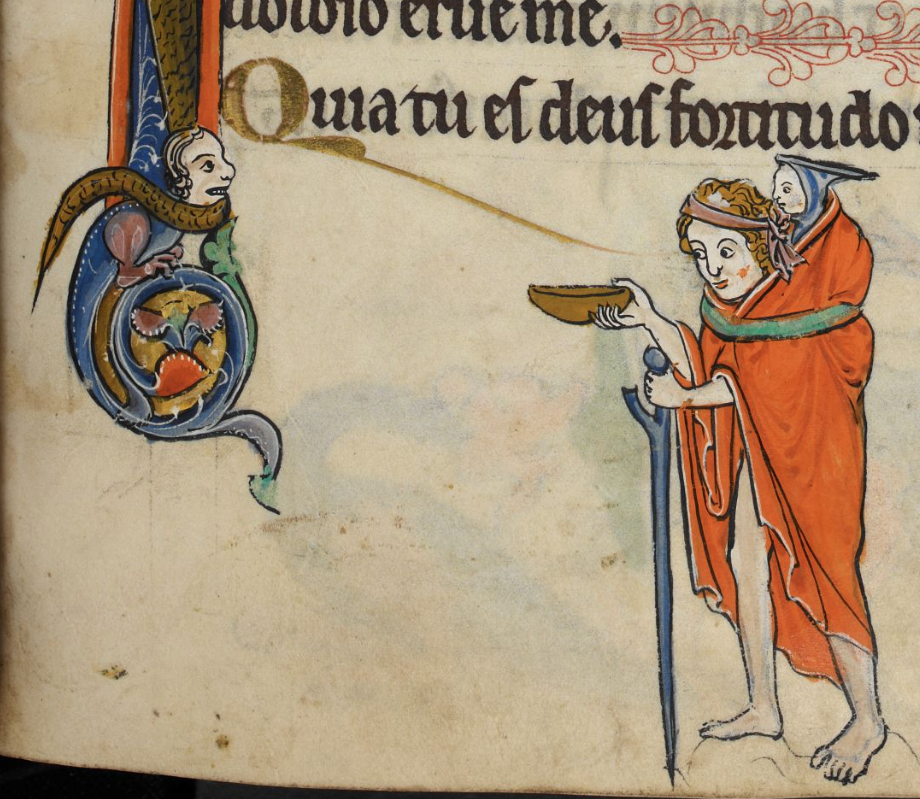 doloſo erue me.
Quia tu eſ deuſ fortitudo